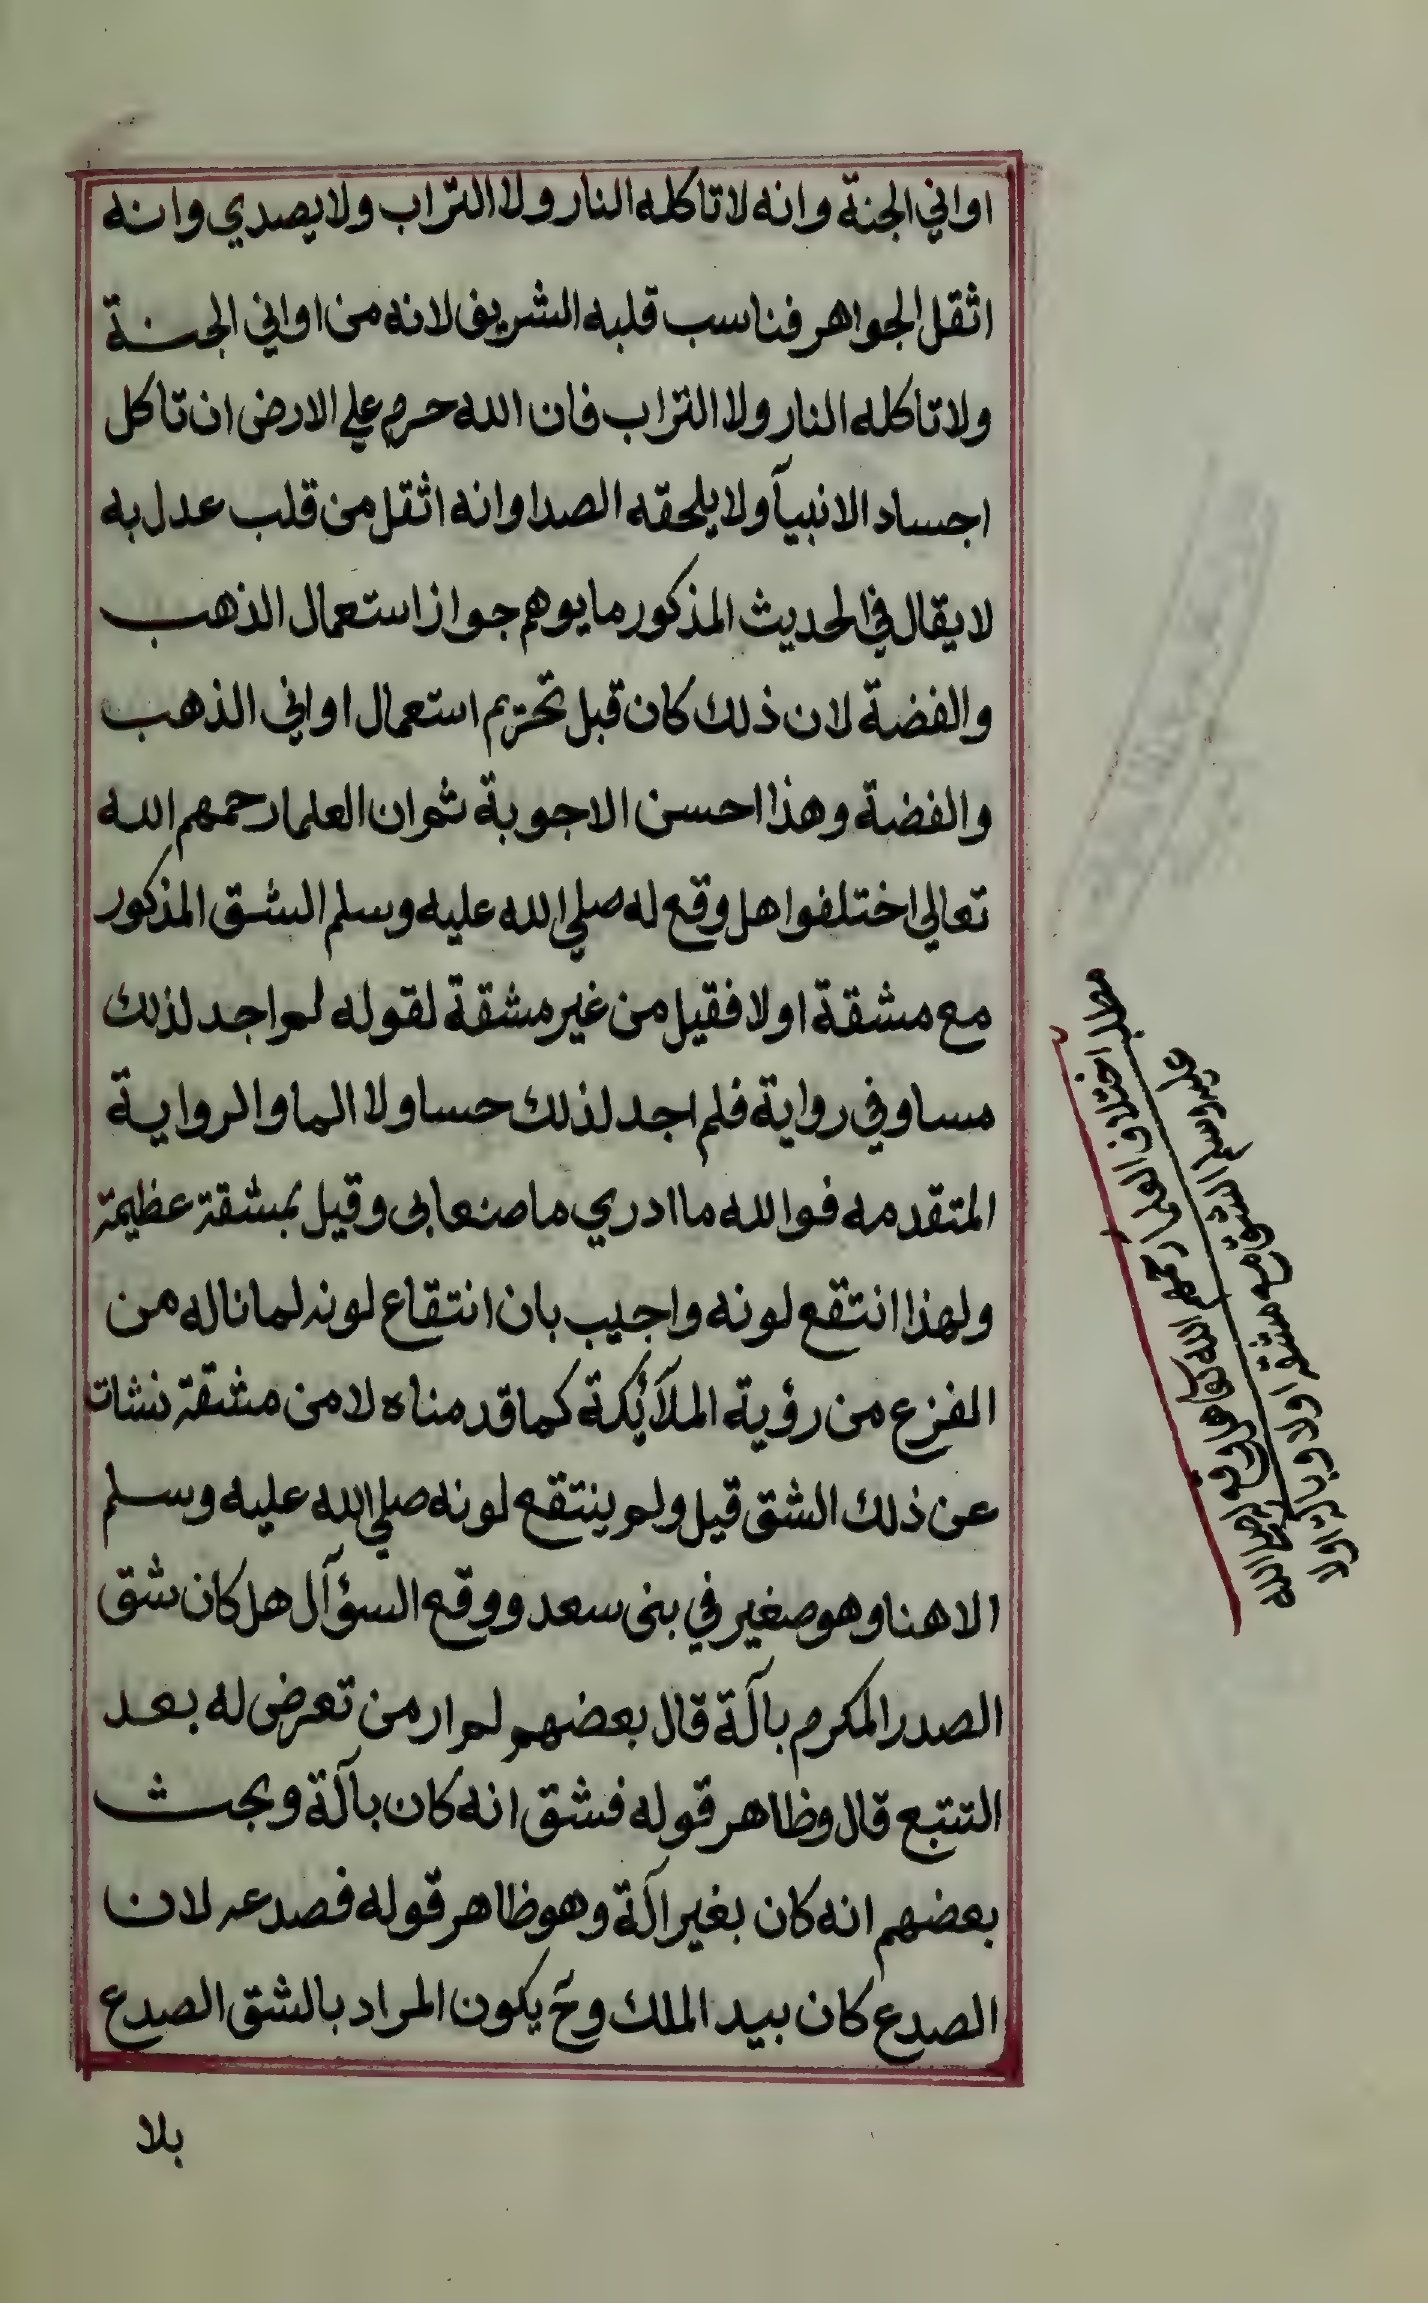 اواني الجنة وانه لا تاكله النار ولا التراب ولا يصدي وانه
اثقل الجواهر فناسب قلبه الشريف لانه من اواني الجنة
ولا تاكله النار ولا التراب فان الله حرم علي الارض ان تاكل
اجساد الانبيآ ولا يلحقه الصدا وانه اثقل من قلب عدل به
لا يقال في الحديث المذكور ما يوهم جواز استعمال الذهب
والفضة لان ذلك كان قبل تحريم استعمال اواني الذهب
والفضة وهذا احسن الاجوبة ثم ان العلما رحمهم الله
تعالي اختلفوا هل وقع له صلي الله عليه وسلم الشق المذكور
مع مشقة اولا فقيل من غير مشقة لقوله لم اجد لذلك
مسا وفي رواية فلم اجد لذلك حسا ولا الما والرواية
المتقدمه فوالله ما ادري ما صنعا بى وقيل بمشقة عظيمة
ولهذا انتقع لونه واجيب بان انتقاع لونه لما ناله من
الفزع من رؤية الملآئكة كما قدمناه لا من مشقة نشات
عن ذلك الشق قيل ولم ينتقع لونه صلي الله عليه وسلم
الا هنا وهو صغير في بنى سعد ووقع السؤآل هل كان شق
الصدر المكرم بآلة قال بعضهم لم ار من تعرض له بعد
التتبع قال وظاهر قوله فشق انه كان بآلة وبحث
بعضهم انه كان بغير آلة وهو ظاهر قوله فصدعه لان
الصدع كان بيد الملك وح يكون المراد بالشق الصدع
بلا
مطلب اختلاف العلما رحمهم الله تعالي هل وقع له صلي الله
عليه وسلم الشق مع مشقة اولا وبآلة اولا